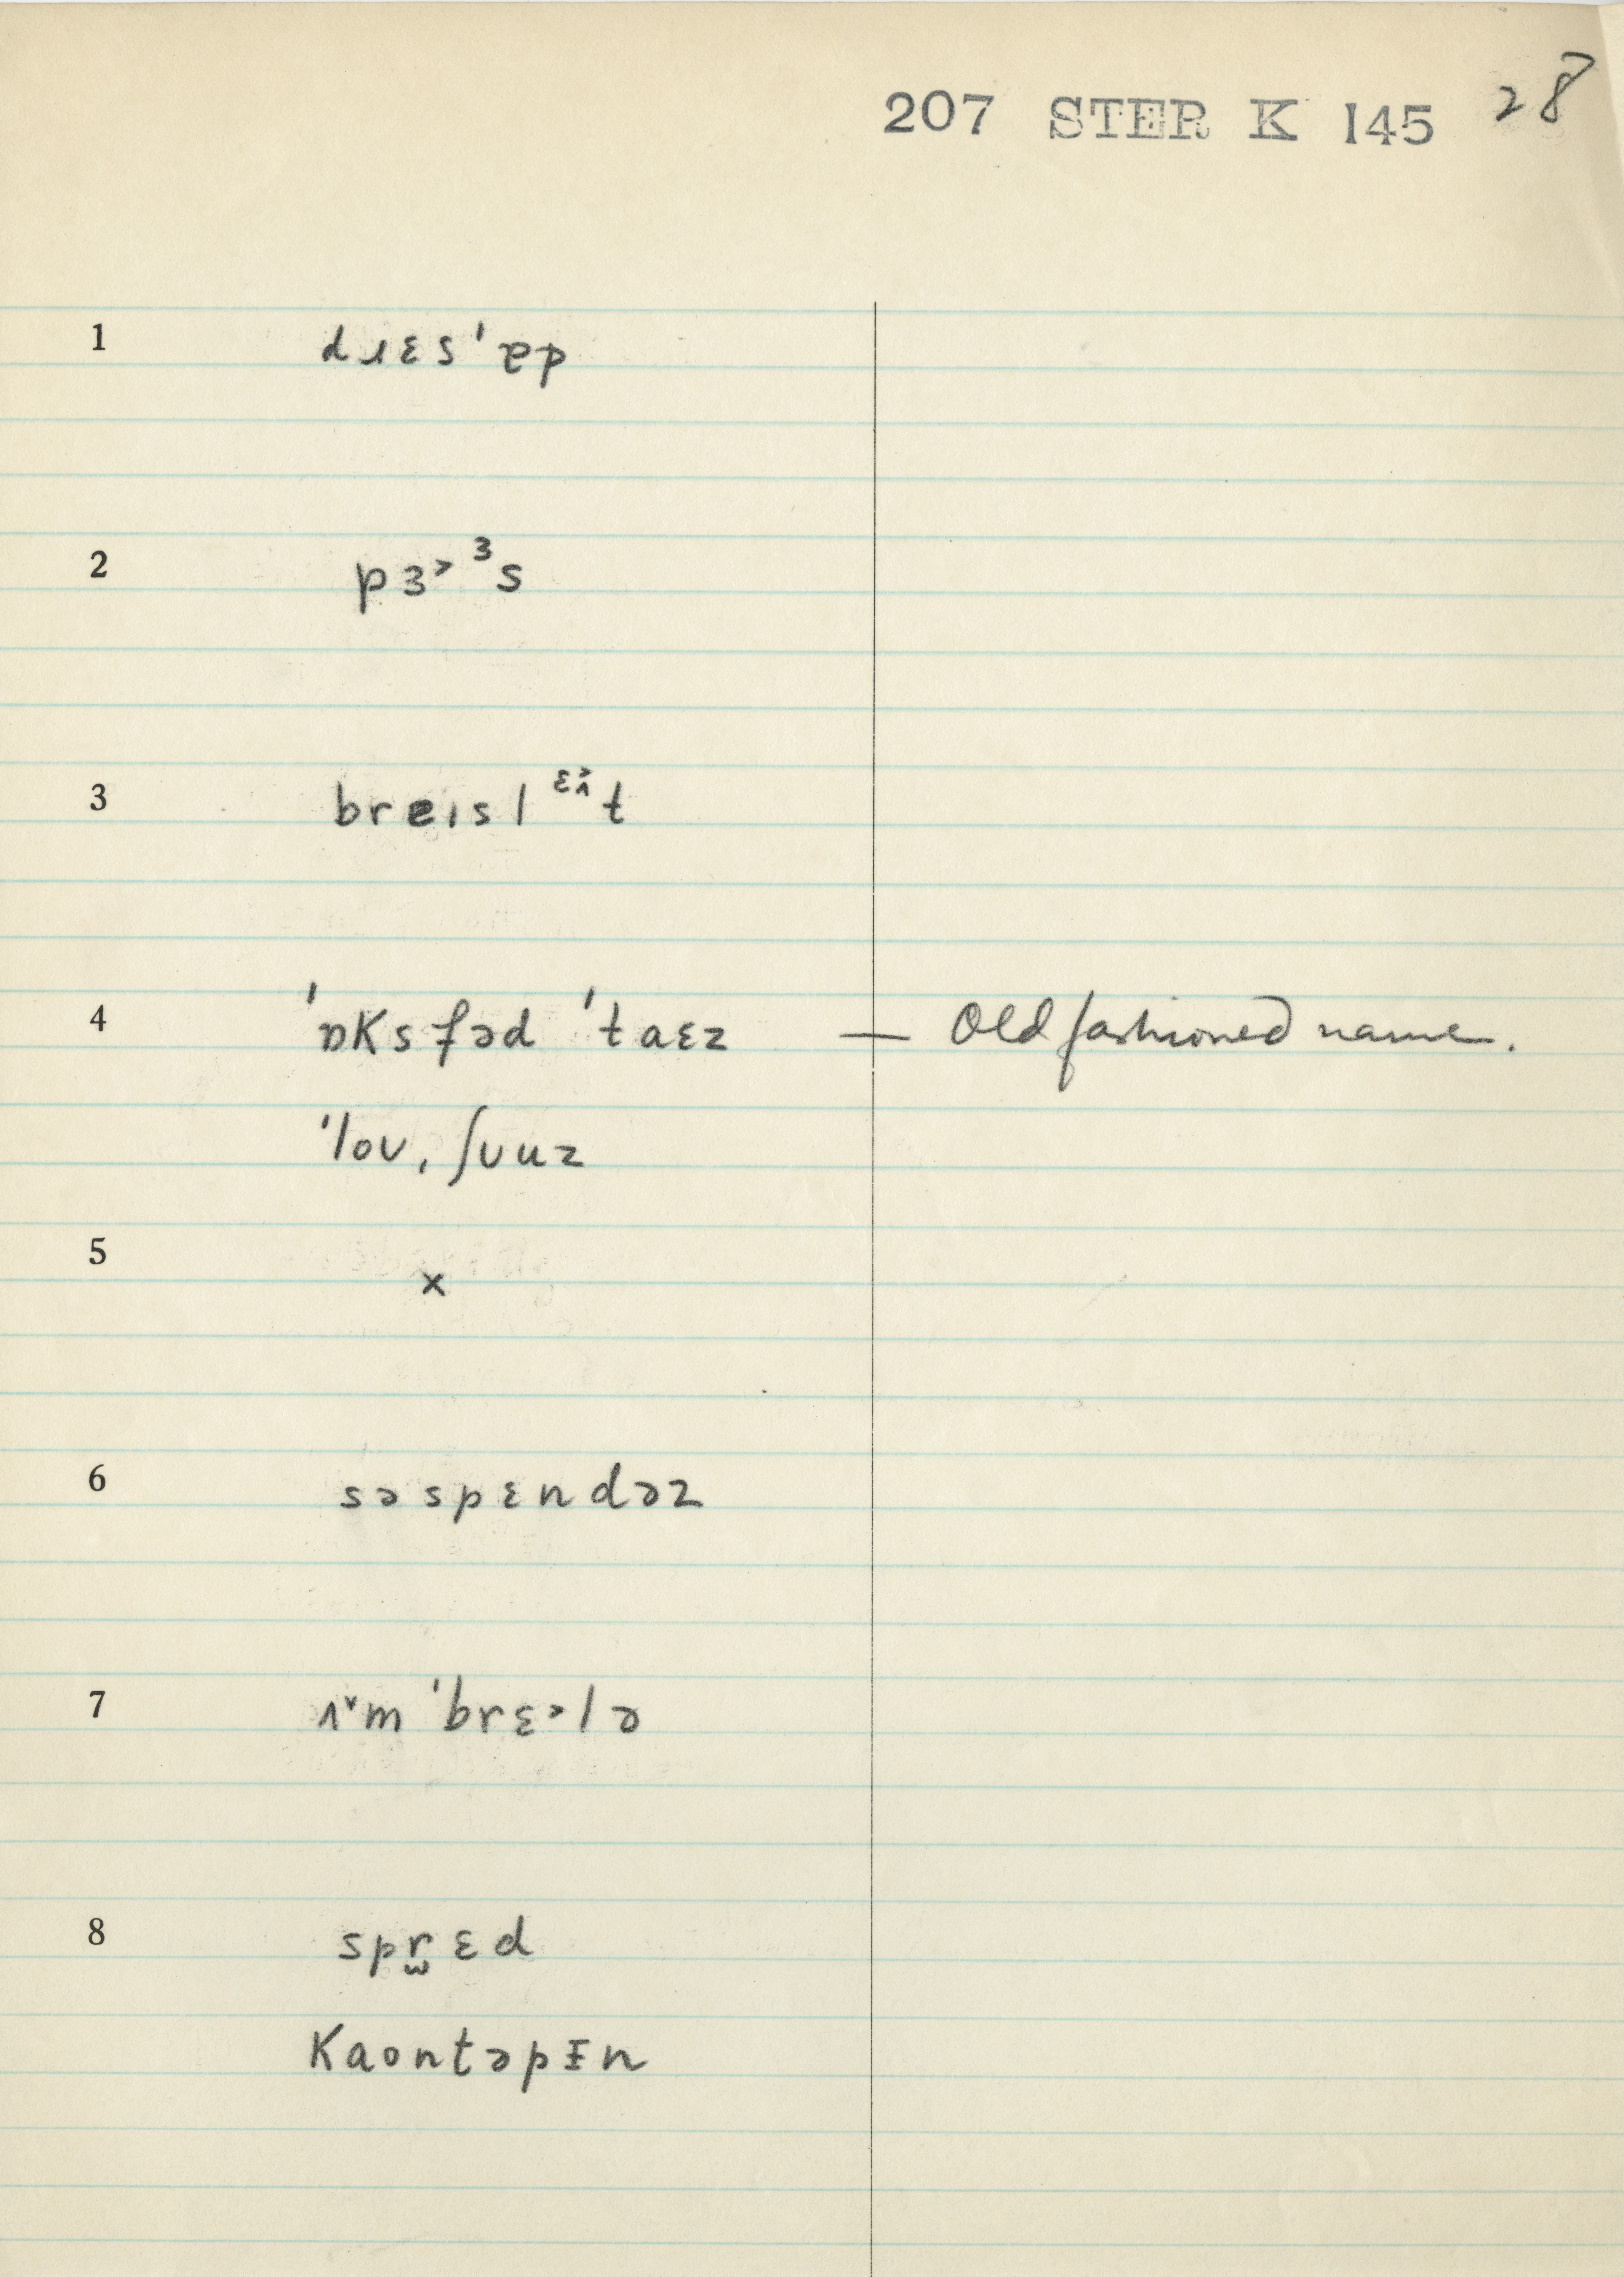 207 STER K 145 28
1 dɹɛs'ɐp
2 pɜ˃ ³s
3 breɪsl ɛʌ̂t
4 'ɒksfəd 'taɛz — Old fashioned name.
'loʊ, ʃʊuz
5 x
6 səspɛndəz
7 ʌ˅m 'brɛ˃lə
8 spr̫ɛd
kaontəpɪn